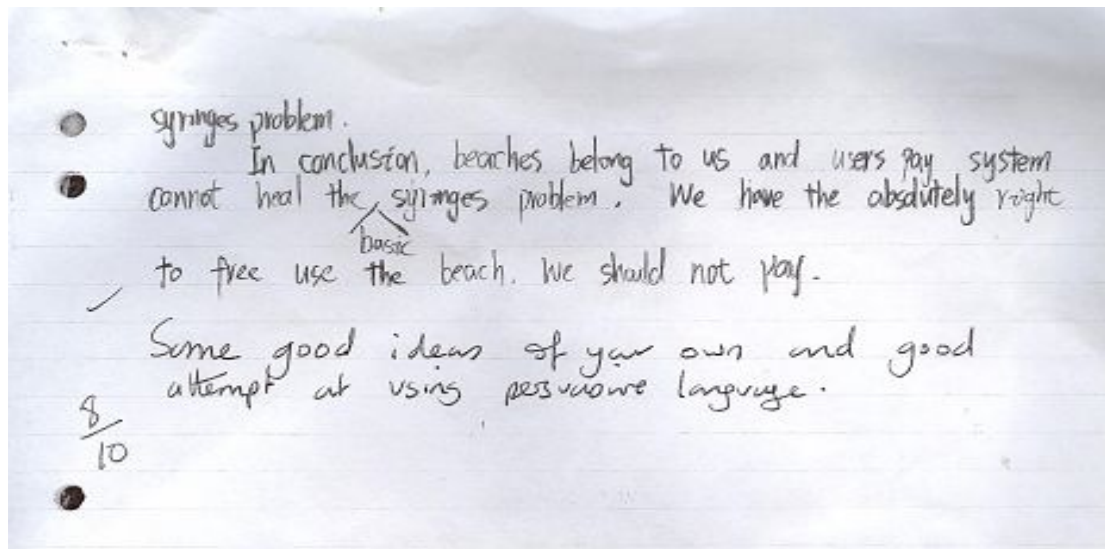 syringes problem.
In conclusion, beaches belong to us and users pay system
cannot heal the syringes problem. We have the absolutely right
basic
to free use the beach. We should not pay.
Some good ideas of your own and good
attempt at using persuasive language.
8
10